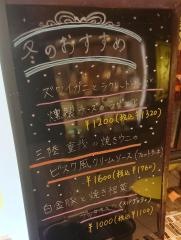 冬のおすすめ
ズワイガニとラクレットチーズ
燻製
¥1200(税込¥1320)
三陸 と焼きウニの
ビスク風クリームソース
¥1600(税込¥1760)
白金豚と焼き根菜
¥1000(税込¥1100)